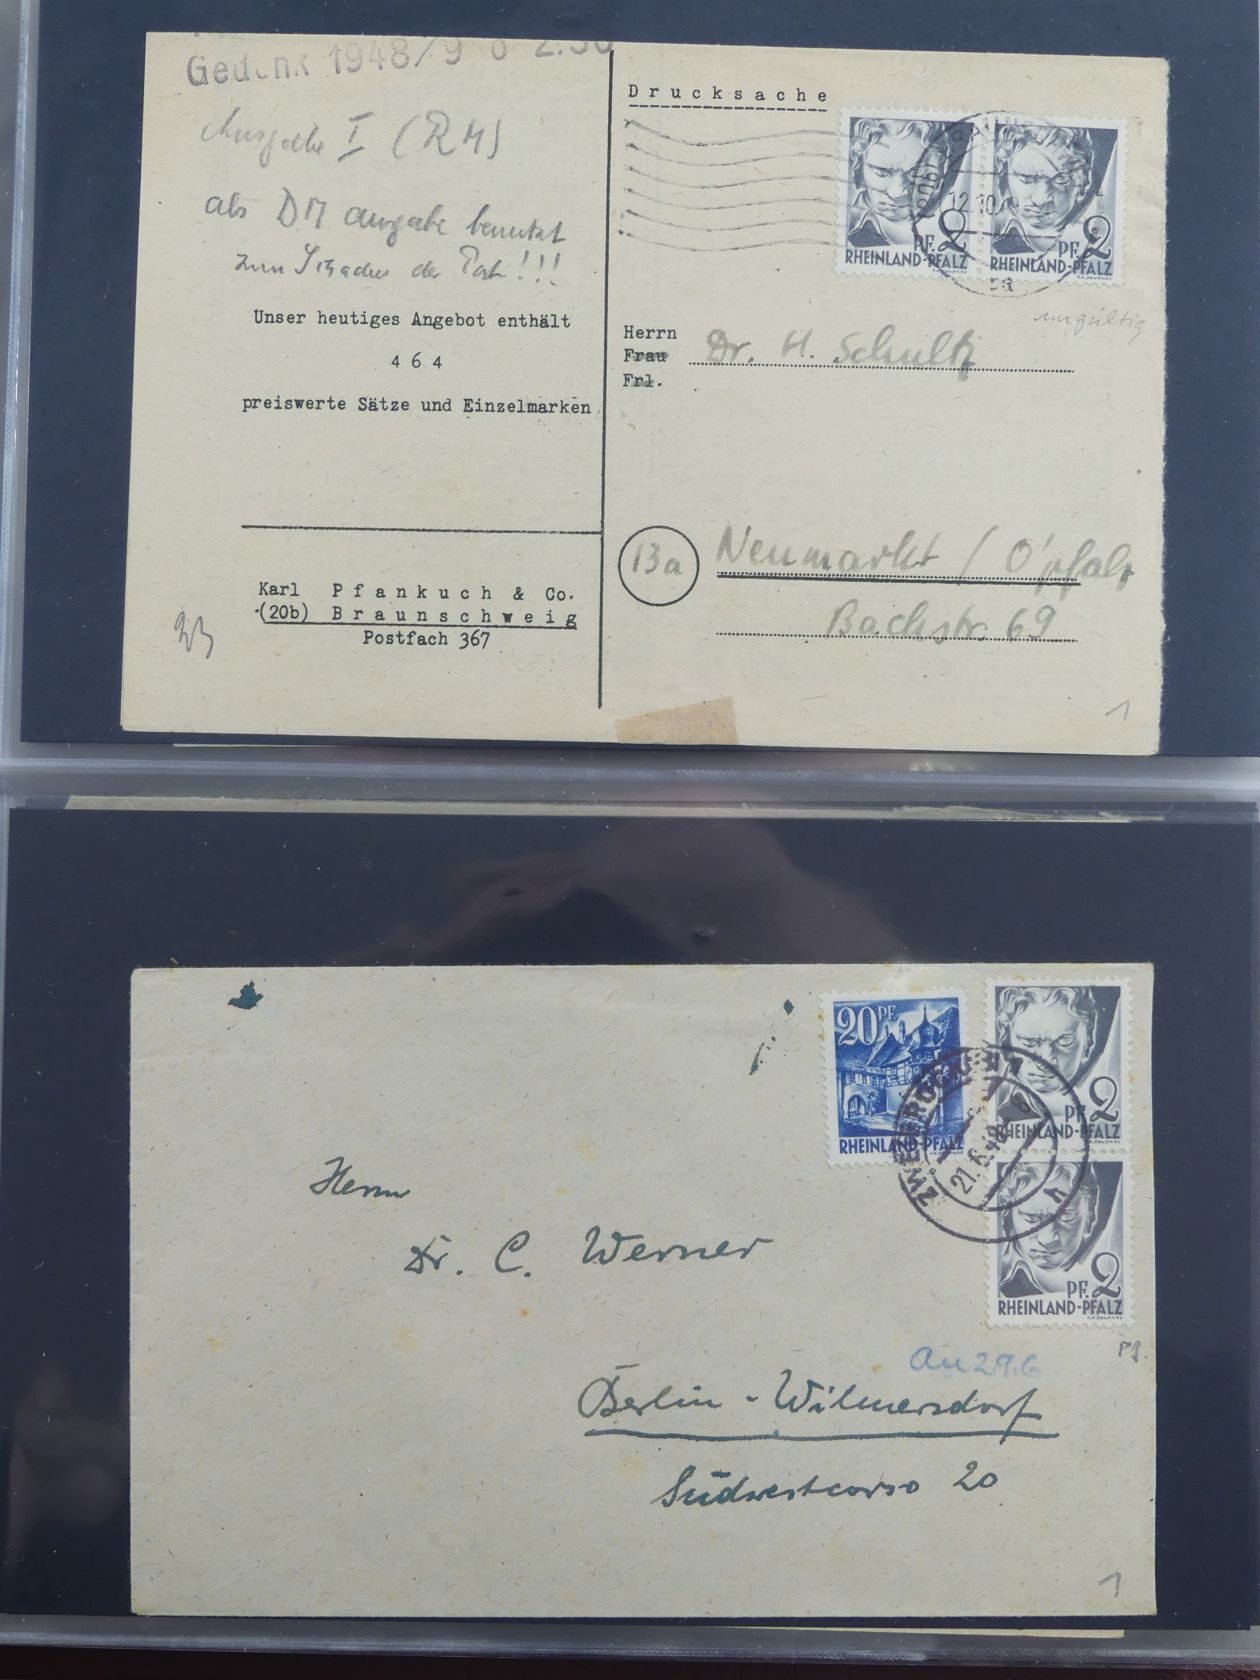 Gedenk 1948/9
Ausgabe I (RM)
als DM ausgabe benutzt
zum Schaden der Post!!!
Unser heutiges Angebot enthält
4 6 4
preiswerte Sätze und Einzelmarken
Karl Pfankuch & Co.
(20b) Braunschweig
Postfach 367
Drucksache
PF. 2
RHEINLAND-PFALZ
PF. 2
RHEINLAND-PFALZ
12.10.
ungültig
Herrn
Frau
Frl.
Dr. H. Schultz
13a
Neumarkt / O'pfalz
Bachstr. 69
1
20 PF
RHEINLAND-PFALZ
PF. 2
RHEINLAND-PFALZ
PF. 2
RHEINLAND-PFALZ
ZWEIBRÜCKEN 1
21.6.48
h
Herrn
Dr. C. Werner
An 29.6
Berlin-Wilmersdorf
Südwestcorso 20
1